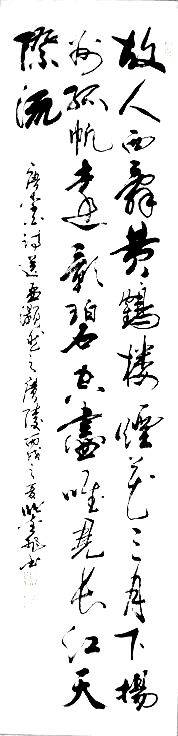 故人西辞黄鹤楼煙花三月下揚
州孤帆遠影碧空盡唯見长江天
際流
唐李白詩送孟浩然之廣陵